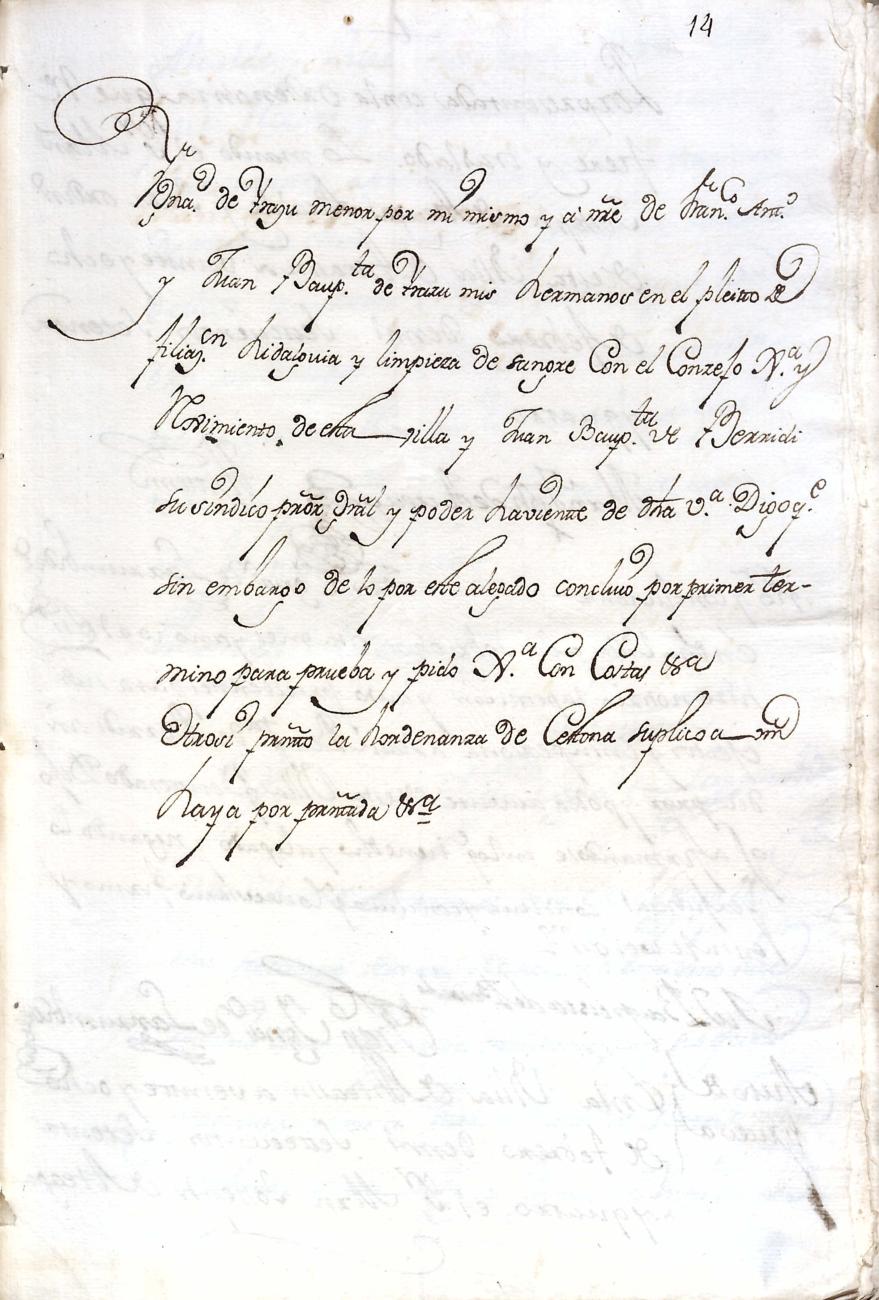 14
S.r
Ygna.o de Yrazu menor por mi mismo y a nr̃e de Fran.co Ant.o
y Juan Baup.ta de Yrazu mis hermanos en el pleitto de
filiaz.on hidalguia y limpieza de sangre Con el Conzejo N.a y
Rexim̃iento de esta villa y Juan Baup.ta de Berridi
su sindico prõr Gñral y poder haviente de dh̃a v.a Digo q.e
sin embargo de lo por este alegado concluio por primer ter-
mino para prueba y pido N.a Con Costas &.a
Otrosi prñto la hordenanza de Cestona suplico a vm̃d
haya por prñtada &.a